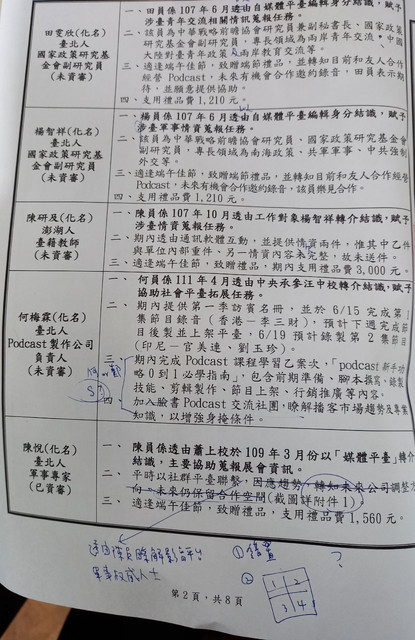 田雯欣(化名)
臺北人
國家政策研究基
金會副研究員
(未資審)
一、田員係 107 年 6 月透由自媒體平臺編輯身分結識,賦予
涉臺青年交流相關情資蒐報任務。
二、該員為中華戰略前瞻協會研究員兼副秘書長、國家政策
研究基金會副研究員,專長領域為兩岸青年交流、中國
大陸對臺青年政策、兩岸教育交流等。
三、適逢端午佳節,致贈端節禮品,並轉知目前和友人合作
經營 Podcast,未來有機會合作邀約錄音,田員表示期
待,並願意提供協助。
四、支用禮品費 1,210 元。
楊智祥(化名)
臺北人
國家政策研究基
金會副研究員
(未資審)
一、楊員係 107 年 6 月透由自媒體平臺編輯身分結識,賦予
涉臺軍事情資蒐報任務。
二、該員為中華戰略前瞻協會研究員、國家政策研究基金會
副研究員,專長領域為南海政策、共軍軍事、中共強制
外交等。
三、適逢端午佳節,致贈端節禮品,並轉知目前和友人合作經營
Podcast,未來有機會合作邀約錄音,該員樂見合作。
四、支用禮品費 1,210 元。
陳研及(化名)
澎湖人
臺籍教師
(未資審)
一、陳員係 107 年 10 月透由工作對象楊智祥轉介結識,賦予
涉臺情資蒐報任務。
二、期內透由通訊軟體互動,並提供情資兩件,惟其中乙件
與單位內部查件、另一情資內容未完整,故未送件。
三、適逢端午佳節,致贈禮品,期內支用禮品費 3,000 元。
何梅霖(化名)
臺北人
Podcast 製作公司
負責人
(未資審)
一、何員係 111 年 4 月透由中央承參汪中校轉介結識,賦予
協助社會平臺拓展任務。
二、期內提供第一季訪賓名冊,並於 6/15 完成第 2
集節目錄音(香港-李三財),預計下週完成節
目後製並上架平臺,6/19 預計錄製第 2 集節目
(印尼-官美達、劉玉珍)。
三、期內完成 Podcast 課程學習乙案次,「podcast 新手功
略 0 到 1 必學指南」,包含前期準備、腳本撰寫、錄製
技能、剪輯製作、節目上架、行銷推廣等內容。
四、加入臉書 Podcast 交流社團,瞭解播客市場趨勢及專業
知識,以增強身掩條件。
陳悅(化名)
臺北人
軍事專家
(已資審)
一、陳員係透由蕭上校於 109 年 3 月份以「媒體平臺」轉介
結識,主要協助蒐報展會資訊。
二、平時以社群平臺聯繫,因應趨勢,轉知未來公司調整方
向,未來仍保留合作空間(截圖詳附件 1)。
三、適逢端午佳節,致贈禮品,支用禮品費 1,560 元。
透由陳員瞭解影音平台
軍事權威人士
①
②
?
1 2
3 4
第 2 頁,共 8 頁